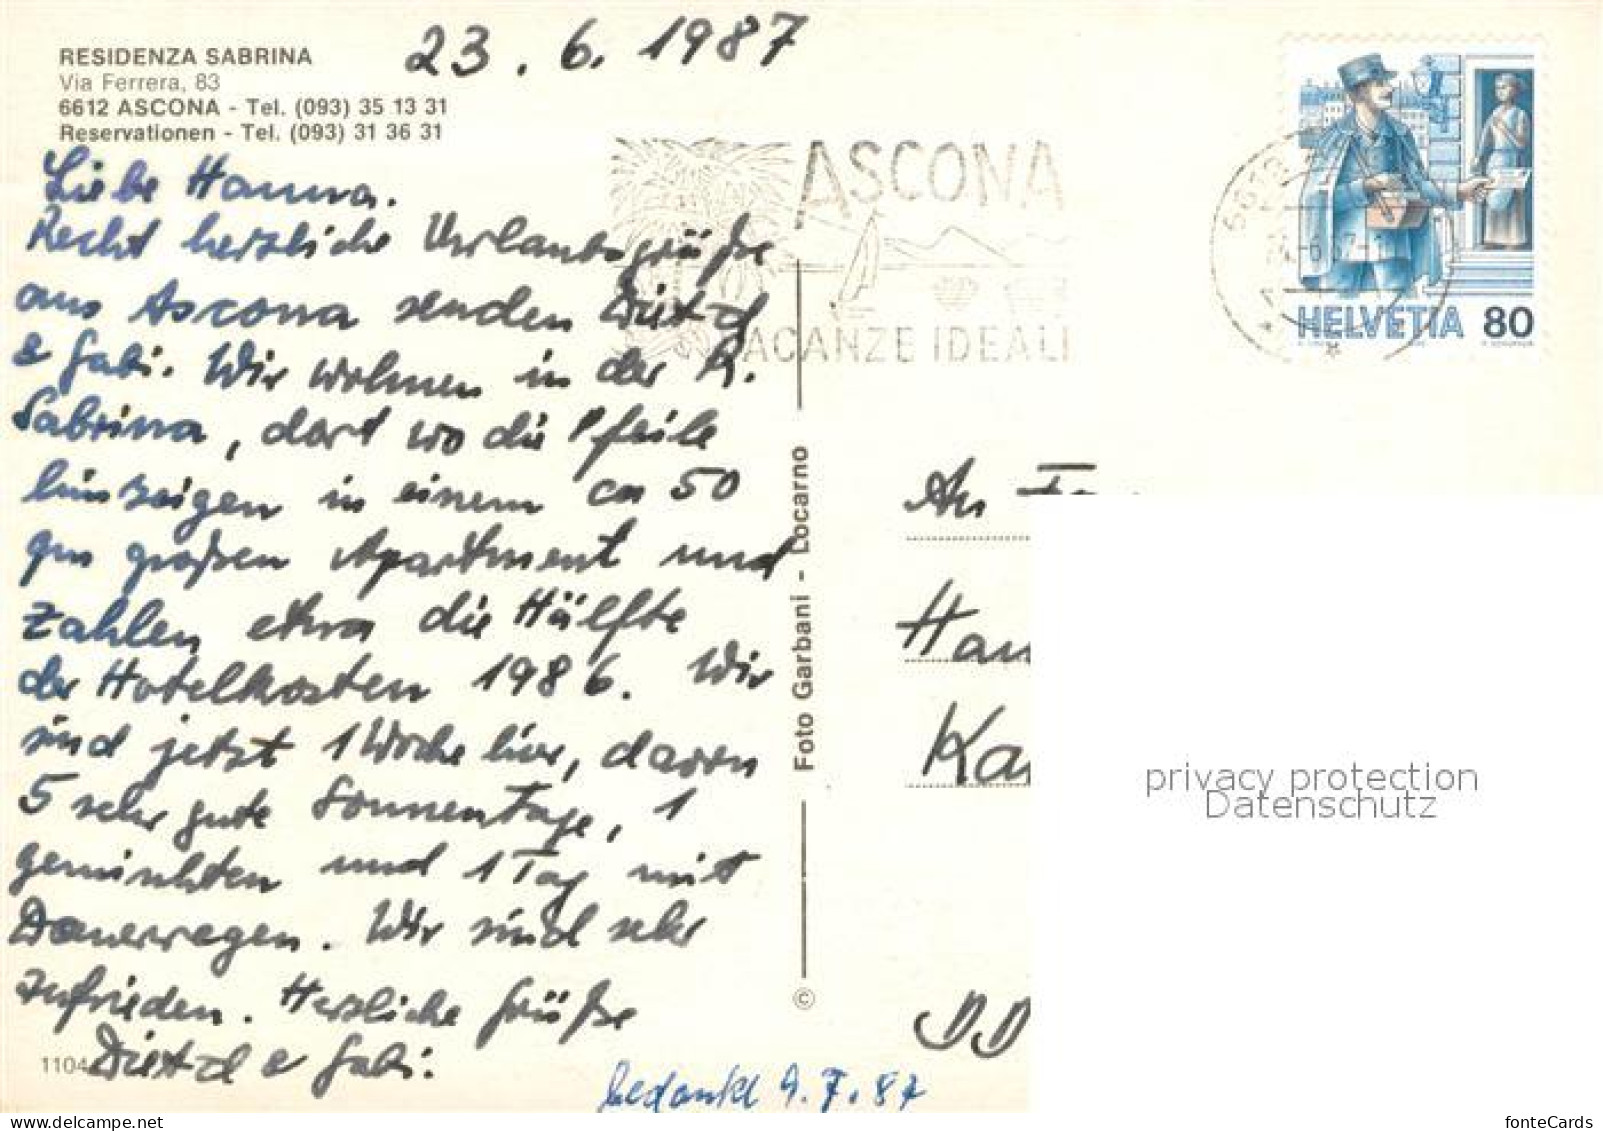 23. 6. 1987
RESIDENZA SABRINA
Via Ferrera, 83
6612 ASCONA - Tel. (093) 35 13 31
Reservationen - Tel. (093) 31 36 31
Liebe Hanna.
Recht herzliche Urlaubsgrüße
aus Ascona senden
& Gabi. Wir wohnen in der R.
Sabrina, dort wo die Pfeile
hinzeigen in einem ca 50
qm großen Apartment und
zahlen etwa die Hälfte
der Hotelkosten 1986. Wir
sind jetzt 1 Woche hier, davon
5 sehr gute Sonnentage, 1
gemischten und 1 Tag mit
Dauerregen. Wir sind sehr
zufrieden. Herzliche Grüße
& Gabi.
1104
bedankt 9.7.87
ASCONA
VACANZE IDEALI
HELVETIA 80
Foto Garbani - Locarno
©
An
Han
Ka
DD
privacy protection
Datenschutz
www.delcampe.net
fonteCards